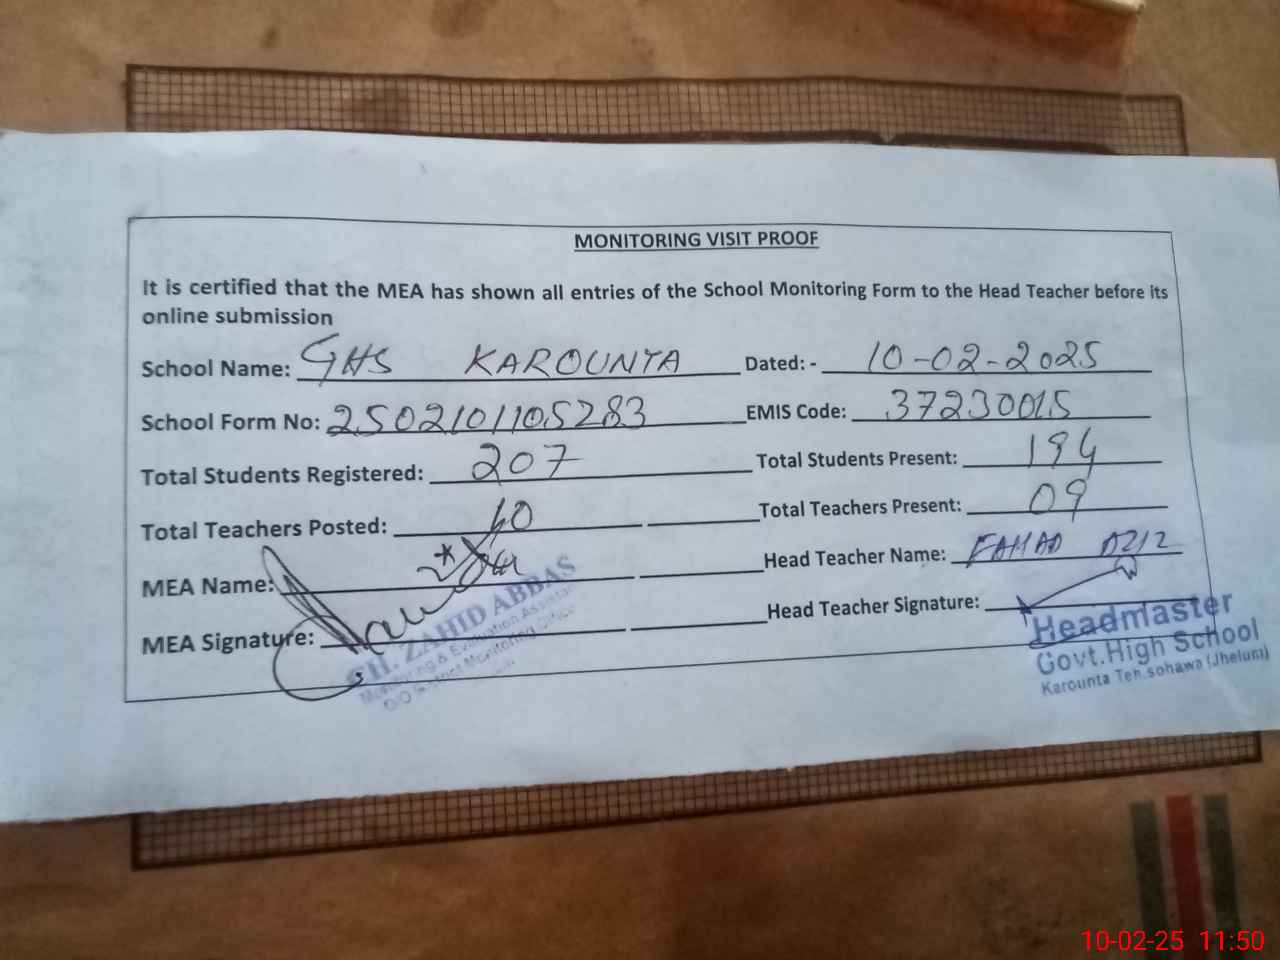 MONITORING VISIT PROOF
It is certified that the MEA has shown all entries of the School Monitoring Form to the Head Teacher before its
online submission
School Name: GHS KAROUNTA Dated: - 10-02-2025
School Form No: 2502101105283 EMIS Code: 37230015
Total Students Registered: 207 Total Students Present: 194
Total Teachers Posted: 10 Total Teachers Present: 09
MEA Name: Head Teacher Name: FAHAD AZIZ
MEA Signature: Head Teacher Signature:
CH. ZAHID ABBAS
Monitoring & Evaluation Assistant
O/O District Monitoring Office
Headmaster
Govt.High School
Karounta Teh.sohawa (Jhelum)
10-02-25 11:50